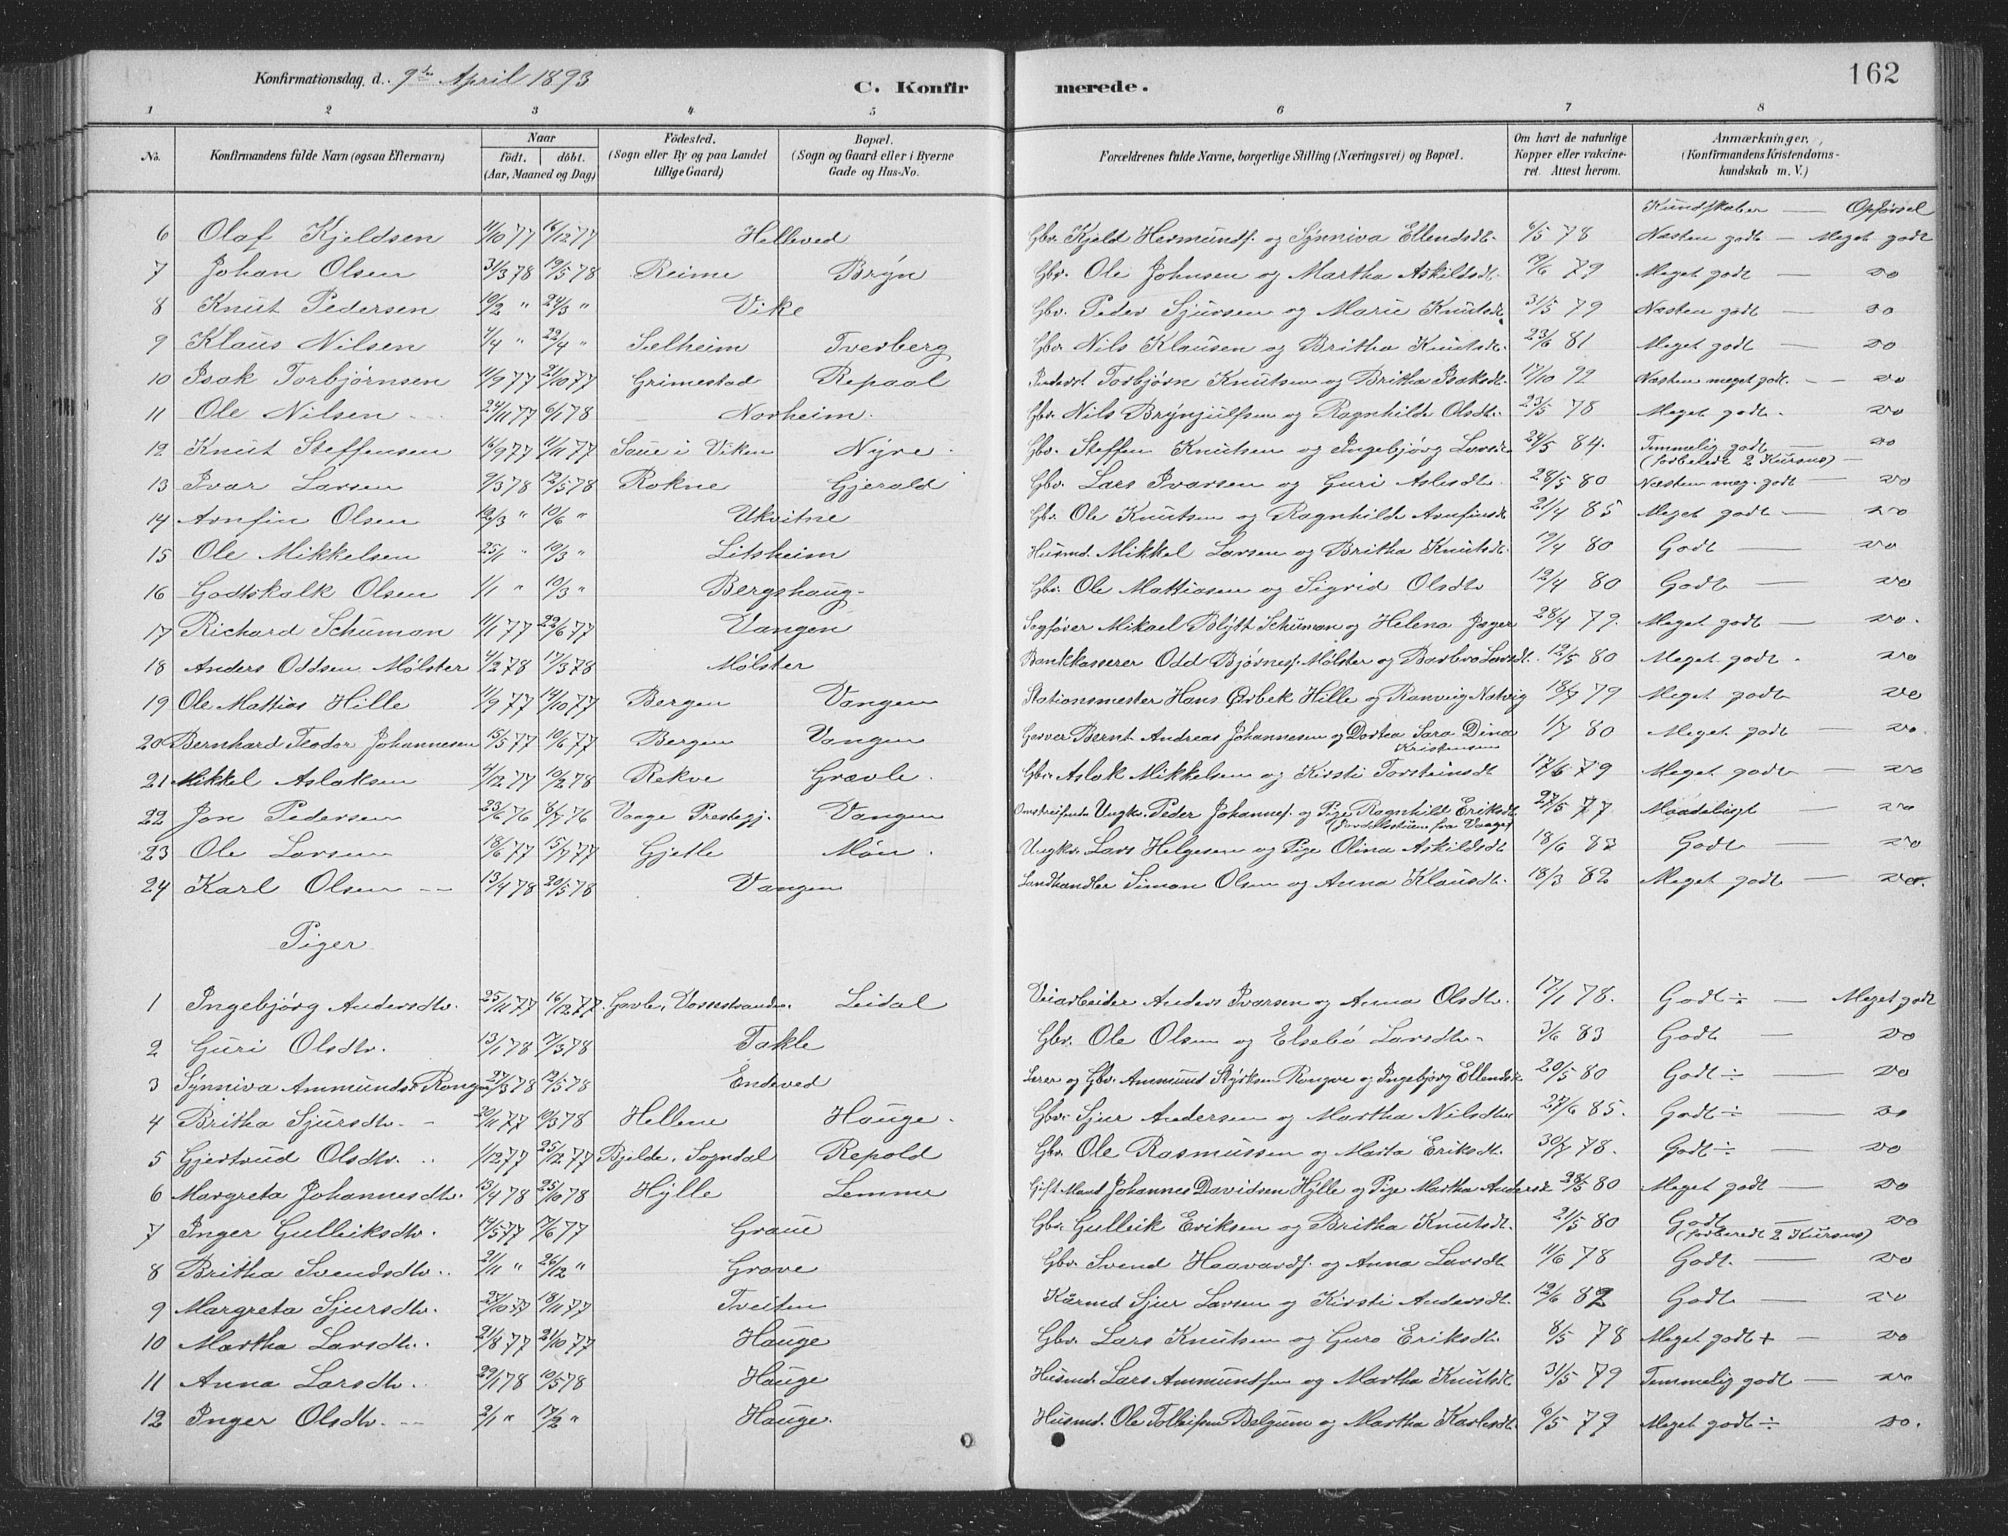 Konfirmationsdag, d. 9de April 1893
C. Konfirmerede.
162
1 2 3 4 5 6 7 8
No. Konfirmandens fulde Navn (ogsaa Efternavn) Naar födt. döbt. (Aar, Maaned og Dag) Födested. (Sogn eller By og paa Landet tillige Gaard) Bopæl. (Sogn og Gaard eller i Byerne Gade og Hus-No. Forældrenes fulde Navne, borgerlige Stilling (Næringsvei) og Bopæl. Om havt de naturlige Kopper eller vakcineret. Attest herom. Anmærkninger, (Konfirmandens Kristendomskundskab m. V.)
Kundskaber — Opførsel
6 Olaf Kjeldsen 11/10 77 16/12 77 Helleved Gbr. Kjeld Hermunds. og Synniva Ellendsdt. 6/5 78 Næsten godt — Meget godt
7 Johan Olsen 31/3 78 19/5 78 Reime Brÿn Gbr. Ole Johnsen og Martha Askildsdt. 19/6 79 Meget godt — do
8 Knut Pedersen 10/2 " 24/3 " Vike Gbr. Peder Sjursen og Mari Knutsdt. 31/5 79 Næsten godt — do
9 Klaus Nilsen 4/4 " 22/4 " Selheim Tverberg Gbr Nils Klausen og Britha Knutsdt. 23/6 81 Meget godt — do
10 Isak Torbjørnsen 11/9 77 21/10 77 Grimestad Repaal Torbjørn Knutsen og Britha Isaksdt. 17/10 92 Næsten meget godt — do
11 Ole Nilsen 24/11 77 6/1 78 Norheim Gbr. Nils Brÿnjulfsen og Ragnhilde Olsdt. 23/5 78 Meget godt. do
12 Knut Steffensen 16/9 77 11/11 77 Saue i Viken Nÿre Gbr. Steffen Knutsen og Ingebjørg Larsdt 24/5 84. Temmelig godt — do
(forberedt 2 Kursus) —
13 Ivar Larsen 9/3 78 12/5 78 Rokne Gjerald Gbr. Lars Ivarsen og Guri Aslesdt. 28/5 80 Næsten meg. godt — do
14 Arnfin Olsen 12/3 " 10/6 " Ukvitne Gbr. Ole Knutsen og Ragnhilde Arnfinsdt 21/4 85 Meget godt — do
15 Ole Mikkelsen 25/1 " 10/3 " Litsheim Husmd. Mikkel Larsen og Britha Knutsdt. 19/4 80 Godt — do
16 Godtskalk Olsen 1/1 " 10/3 " Bergshaug Gbr. Ole Mattiasen og Sigrid Olsdt 12/4 80 Godt — do
17 Richard Schuman 11/1 77 22/6 77 Vangen Sagfører Mikael Blÿtt Schuman og Helena Jæger 28/4 79. Meget godt — do.
18 Anders Oddsen Mølster 4/2 78 17/3 78 Mølster Bankkasserer Odd Bjørnes. Mølster og Barbro Larsdt. 12/5 80 Meget godt. do
19 Ole Mattias Hille 11/9 77 14/10 77 Bergen Vangen Stationsmester Hans Ørbek Hille og Ranveig Natvig 18/7 79 Meget godt do
20 Bernhard Teodor Johannesen 15/5 77 10/6 77 Bergen Vangen Garver Bernt Andreas Johannesen og Dortea Sara Dina 1/7 80 Meget godt — do.
Kristensen
21 Mikkel Aslaksen 4/12 77 10/2 78 Rekve Grævle. Gbr. Aslak Mikkelsen og Kirsti Torsteinsdt 17/6 79 Meget godt — do
22 Jon Pedersen 23/6 76 8/7 76 Vaage Prestegj. Vangen Omstreifende Ungk. Peder Johannes. og Pige Ragnhild Eriksdt 27/5 77 Maadeligt — do
23 Ole Larsen 18/6 77 15/7 77 Gjelle Møn. Ungkr. Lars Helgesen og Pige Olina Askildsdt 18/6 83 Godt — do
24 Karl Olsen 13/4 78 20/5 78 Vangen Landhandler Simon Olsen og Anna Klausdt. 18/3 82 Meget godt — do.
Piger
1 Ingebjørg Andersdtr. 25/11 77 16/12 77. Gavle, Vossestranden. Leidal Veiarbeider Anders Ivarsen og Anna Olsdt. 17/1 78. Godt ÷ — Meget godt
2 Guri Olsdtr. 13/1 78 17/3 78 Takle Gbr. Ole Olsen og Elsebø Larsdtr. 3/6 83 Godt — do
3 Sÿnniva Ammundsdt Rongve 27/3 78 12/5 78 Endeved Lærer og Gbr. Ammund Stÿrksen Rongve og Ingebjørg Ellendsdt 20/5 80 Godt ÷ — do
4 Britha Sjursdtr. 20/11 77 10/3 78 Hellene Hauge. Gbr. Sjur Andersen og Martha Nilsdtr 27/6 85. Godt ÷ — do
5 Gjertrud Olsdtr. 1/12 77 25/12 77 Bjelde, Sogndal Repold Gbr. Ole Rasmussen og Marta Eriksdt. 30/7 78. Godt ÷ — do
6 Margreta Johannesdtr. 13/4 78 25/10 78 Hÿlle Lemme Gift Mand Johannes Davidsen Hÿlle og Pige Martha Andersdt 28/5 80 Meget godt — do
7 Inger Gulleiksdtr. 14/5 77 17/6 77 Graue Gbr. Gulleik Eriksen og Britha Knutsdt. 21/5 80 Godt — do
(forberedt 2 Kursus)
8 Britha Svendsdtr. 21/11 " 26/12 " Grove Gbr. Svend Haavards. og Anna Larsdt 11/6 78 Godt. — do
9 Margreta Sjursdtr. 27/10 77 18/11 77 Tveiten Kårmd Sjur Larsen og Kirsti Andersdt. 12/6 82 Godt — do
10 Martha Larsdtr. 21/8 77 21/10 77 Hauge Gbr. Lars Knutsen og Guro Eriksdt. 8/5 78 Meget godt + — do
11 Anna Larsdtr. 29/1 78 10/5 78 Hauge Husmd. Lars Ammundsen og Martha Knutsdt 31/5 79 Temmelig godt — do
12 Inger Olsdtr. 2/1 " 17/2 " Hauge. Husmd. Ole Tolleifsen Belgum og Martha Karlesdt. 6/5 79 Meget godt ÷ do.